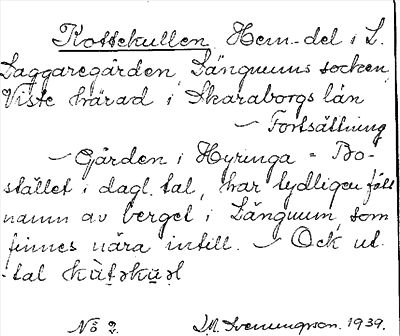 Kottekullen Hem-del i L.
Laggaregården, Längnums socken,
Viste härad i Skaraborgs län
— Fortsättning
— Gården i Hyringa = Bo-
stället i dagl. tal, har tydligen fått
namn av berget i Längnum, som
finnes nära intill. — Ock ut-
tal
No 2. 1939.